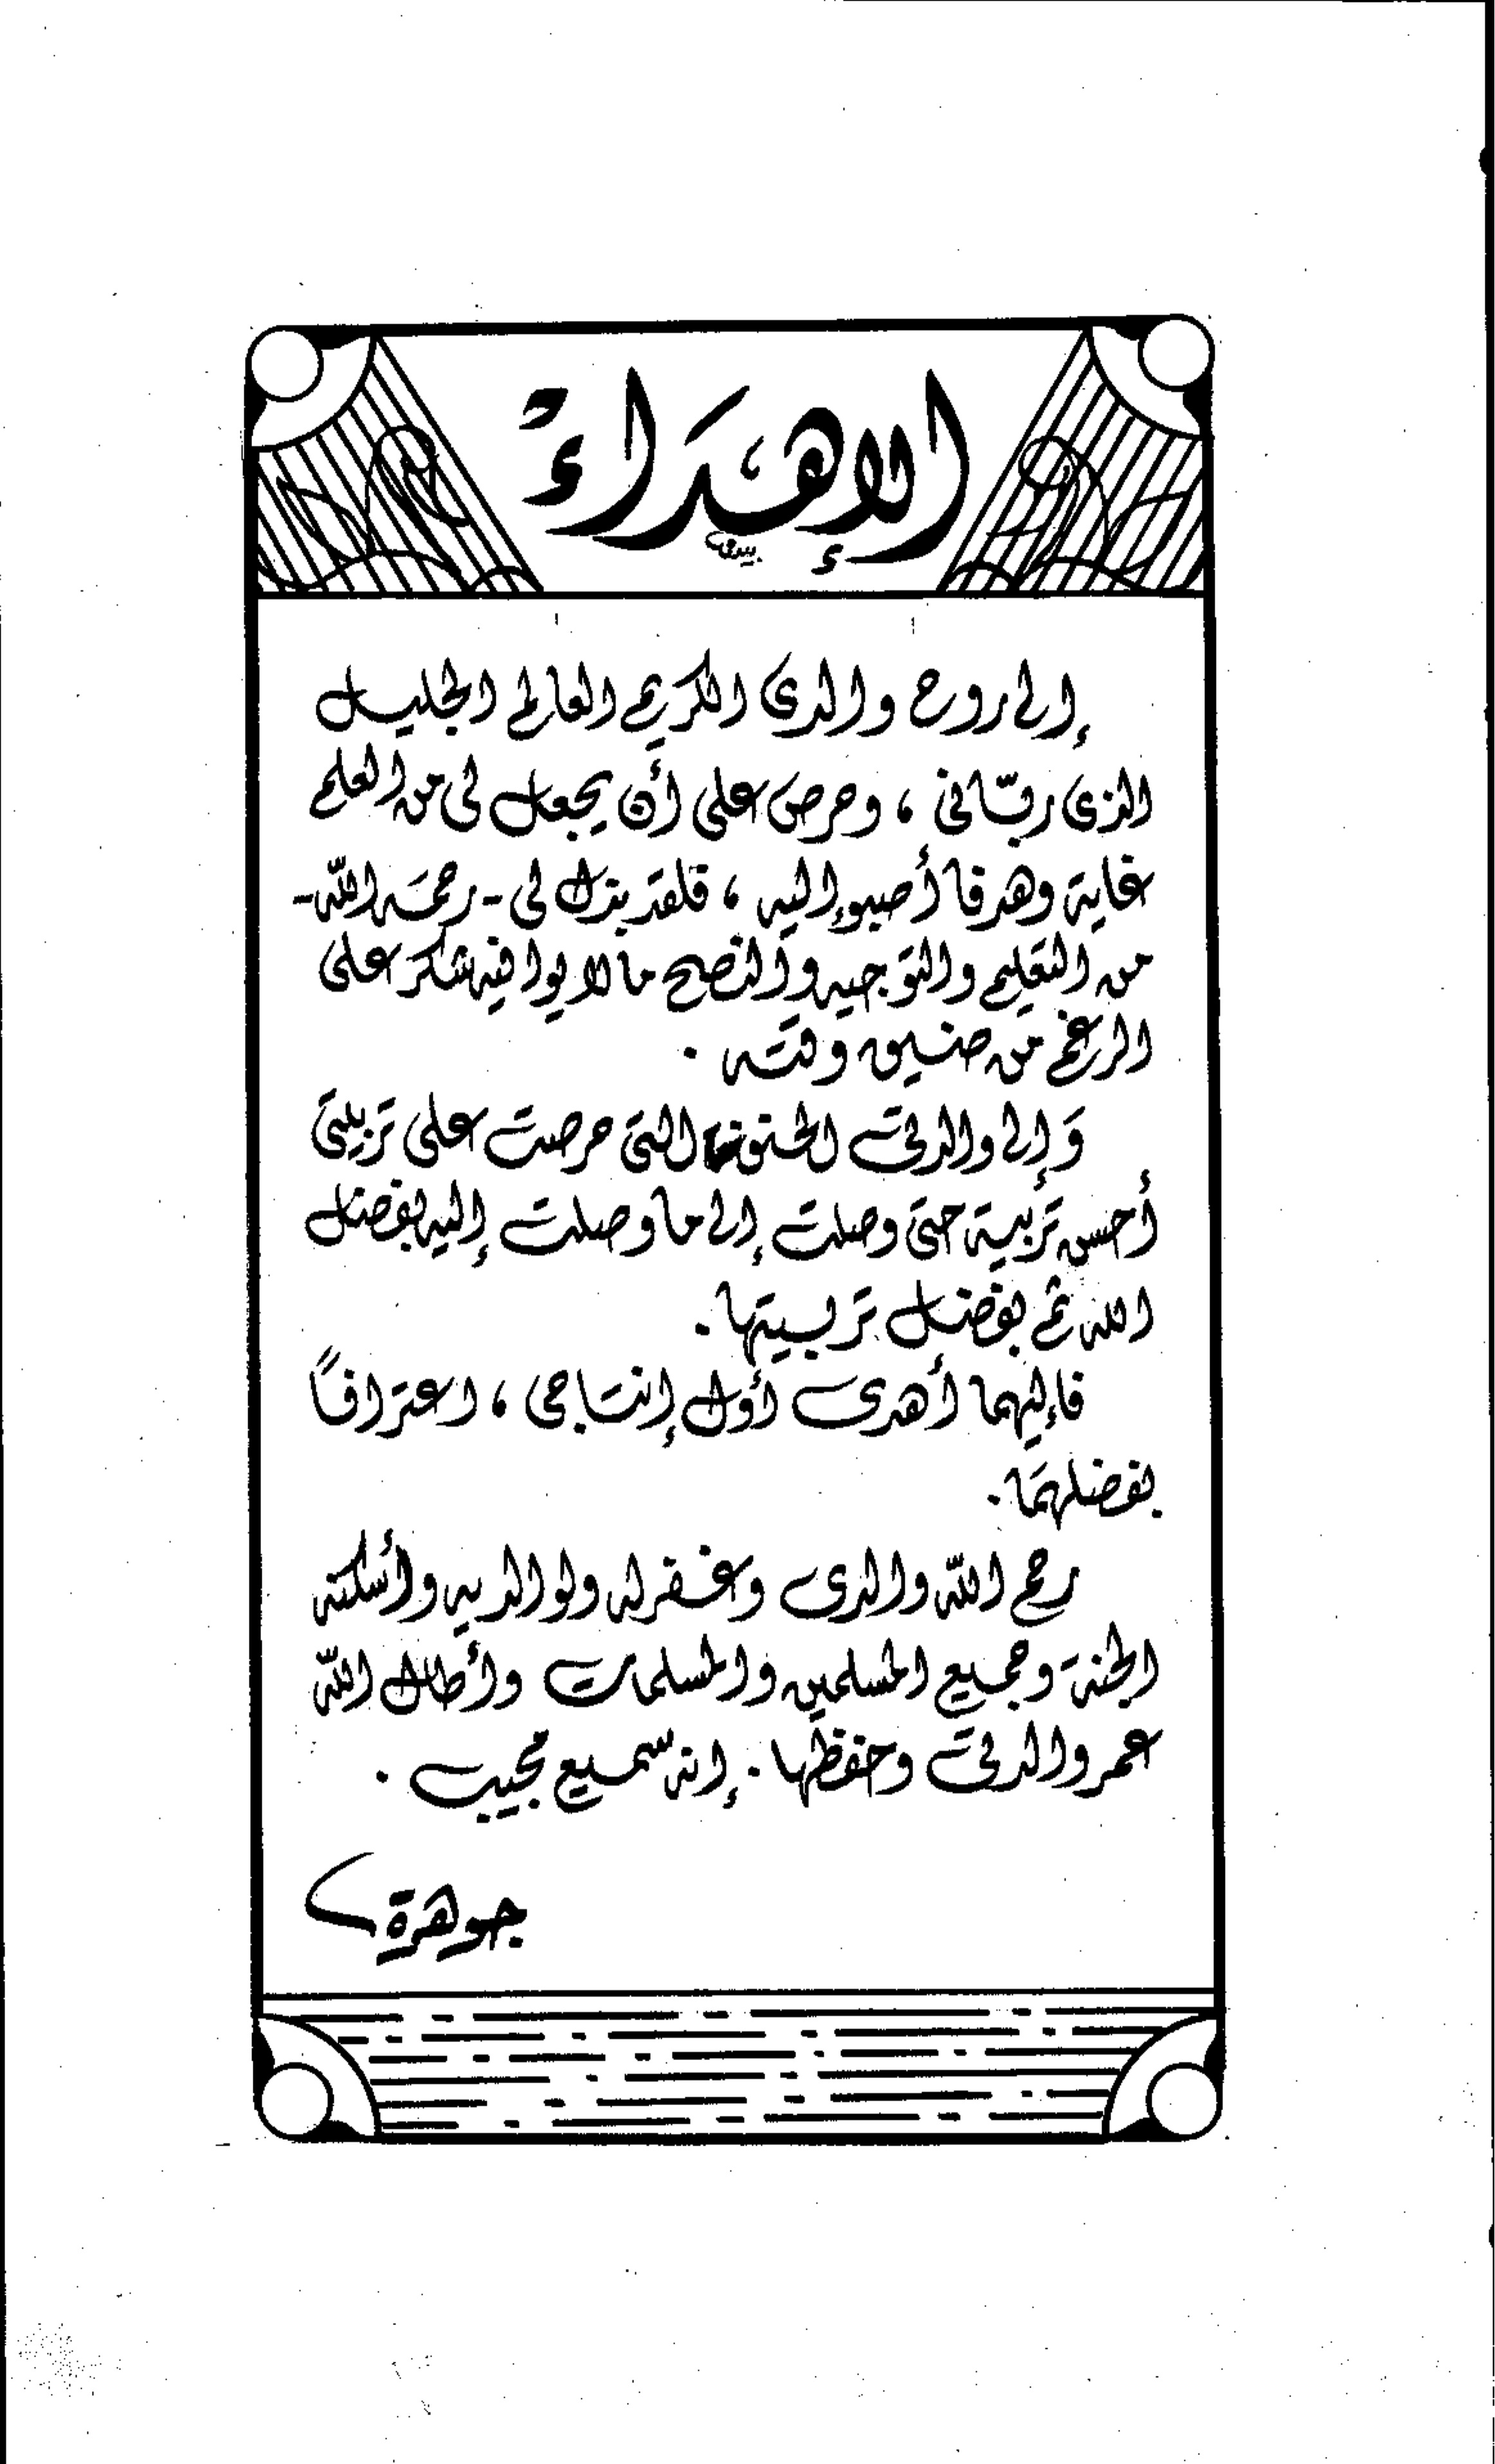 الإهداء
إلى روح والدى الكريم العالم الجليل
الذى ربّانى ، وحرص على أن يجعل لى من العلم
غاية وهدفا أصبو إليه ، فلقد بذل لى - رحمه الله -
من التعليم والتوجيه والنصح ما لا يوافيه شكر على
الرغم من ضيق وقته .
وَإلى والدتى الحنونة التى حرصت على تربيتى
أحسن تربية حتى وصلت إلى ما وصلت إليه بفضل
الله ثم بفضل تربيتها .
فإليهما أهدى أول إنتاجى ، اعترافاً
بفضلهمَا .
رحم اللّه والدى وغفر له ولوالديه وأسكنه
الجنة وجميع المسلمين والمسلمات وأطال اللّه
عمر والدتى وحفظها . إنه سميع مجيب .
جوهرة